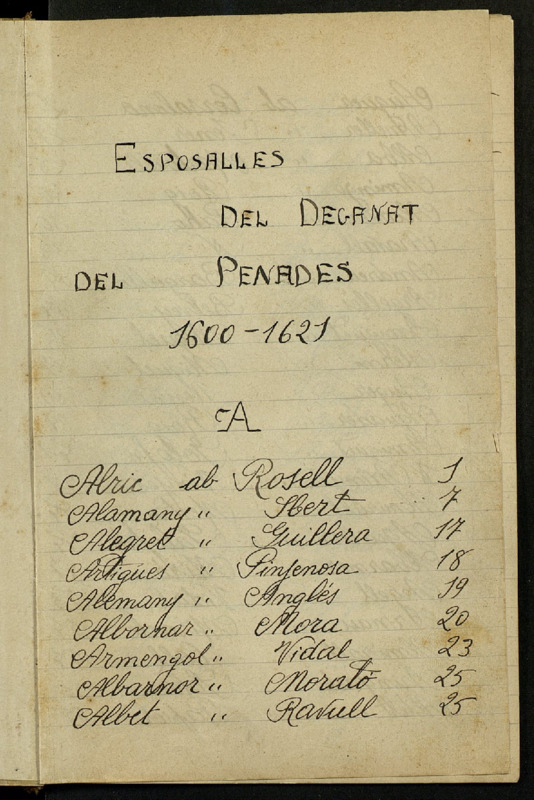 ESPOSALLES
DEL DEGANAT
DEL PENADES
1600-1621
A
Alric ab Rosell 1
Alamany " Sbert 7
Alegret " Guillera 17
Artigues " Pinjenosa 18
Alemany " Anglés 19
Albornar " Mora 20
Armengol " Vidal 23
Albarnor " Morató 25
Albet " Ravull 25